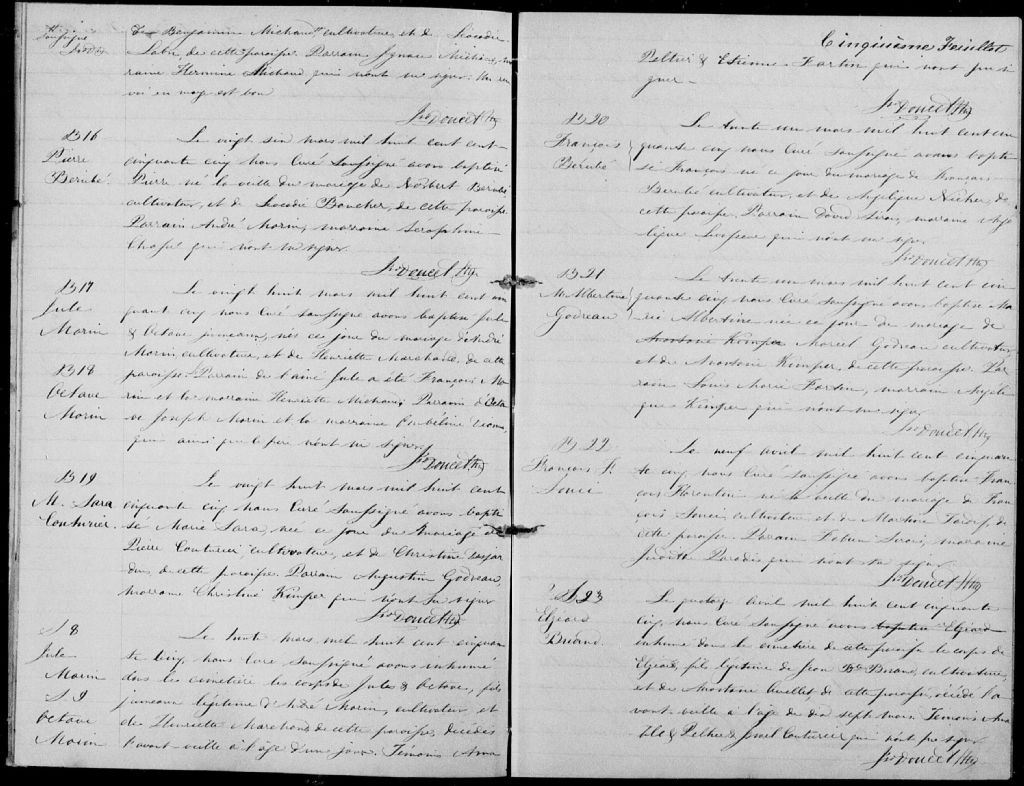 Soussigné
de Benjamin Michaud cultivateur et de Léocadie
de cette paroisse. Parrain Ignace
raine Hermine Michaud qui n'ont su signer. Un ren
voi en marge est bon
Jos Doucet Ptre
B 16
Pierre
Bérubé
Le vingt six mars mil huit cent
cinquante cinq nous Curé soussigné avons baptisé
Pierre né la veille du mariage de Norbert Bérubé
cultivateur, et de Léocadie Boucher, de cette paroisse
Parrain André Morin, marraine Séraphine
qui n'ont su signer
Jos Doucet Ptre
B 17
Jule
Morin
B 18
Octave
Morin
Le vingt huit mars mil huit cent cin
quante cinq nous Curé soussigné avons baptisé Jule
& Octave jumeaux, nés ce jour du mariage d'André
Morin, cultivateur, et de Henriette Marchand, de cette
paroisse. Parrain de l'ainé Jule a été François Mo
rin et la marraine Henriette Michaud; Parrain d'Octa
ve Joseph Morin et la marraine Ombéline
qui ainsi que le père n'ont su signer
Jos Doucet Ptre
B 19
M. Sara
Couturier
Le vingt huit mars mil huit cent
cinquante cinq nous Curé soussigné avons bapti
sé Marie Sara, née ce jour du mariage de
Pierre Couturier cultivateur, et de Christine
de cette paroisse. Parrain Augustin Godreau,
marraine Christine Kimper qui n'ont su signer
Jos Doucet Ptre
S 8
Jule
Morin
S 9
Octave
Morin
Le trente mars mil huit cent cinquan
te cinq, nous Curé soussigné avons inhumé
dans le cimetière les corps de Jule & Octave, fils
jumeaux légitime d'André Morin, cultivateur, et
de Henriette Marchand de cette paroisse, décédés
l'avant-veille à l'âge d'un jour. Témoins Ama
Cinquième Feuillet
Peltier & Etienne Fortin qui n'ont pu si
gner
Jos Doucet Ptre
B 20
François
Bérubé
Le trente un mars mil huit cent cin
quante cinq nous Curé soussigné avons bapti
sé François né ce jour du mariage de François
Bérubé cultivateur, et de Angélique de
cette paroisse. Parrain David marraine Angé
lique qui n'ont su signer
Jos Doucet Ptre
B 21
M. Albertine
Godreau
Le trente un mars mil huit cent cin
quante cinq nous Curé soussigné avons baptisé Ma
rie Albertine née ce jour du mariage de
Anastasie Kimper Marcel Godreau cultivateur
et de Anastasie Kimper, de cette paroisse. Par
rain Louis Marie Fortin, marraine Angéli
que Kimper qui n'ont su signer
Jos Doucet Ptre
B 22
François F.
Souci
Le neuf avril mil huit cent cinquan
te cinq nous Curé soussigné avons baptisé Fran
çois Florentin né la veille du mariage de Fran
çois Souci, cultivateur et de Martine Tardif, de
cette paroisse. Parrain Fabien marraine
Judithe Paradis qui n'ont su signer
Jos Doucet Ptre
S 23
Elzéard
Briand
Le quatorze avril mil huit cent cinquante
cinq, nous Curé soussigné avons baptisé Elzéard
inhumé dans le cimetière de cette paroisse le corps de
Elzéard, fils légitime de Jean Bte Briand, cultivateur,
et de Anastasie Ouellet, de cette paroisse, décédé l'a
vant-veille à l'âge de dix sept mois. Témoins Ama
ble Peltier & Joel Couturier qui n'ont pu signer
Jos Doucet Ptre